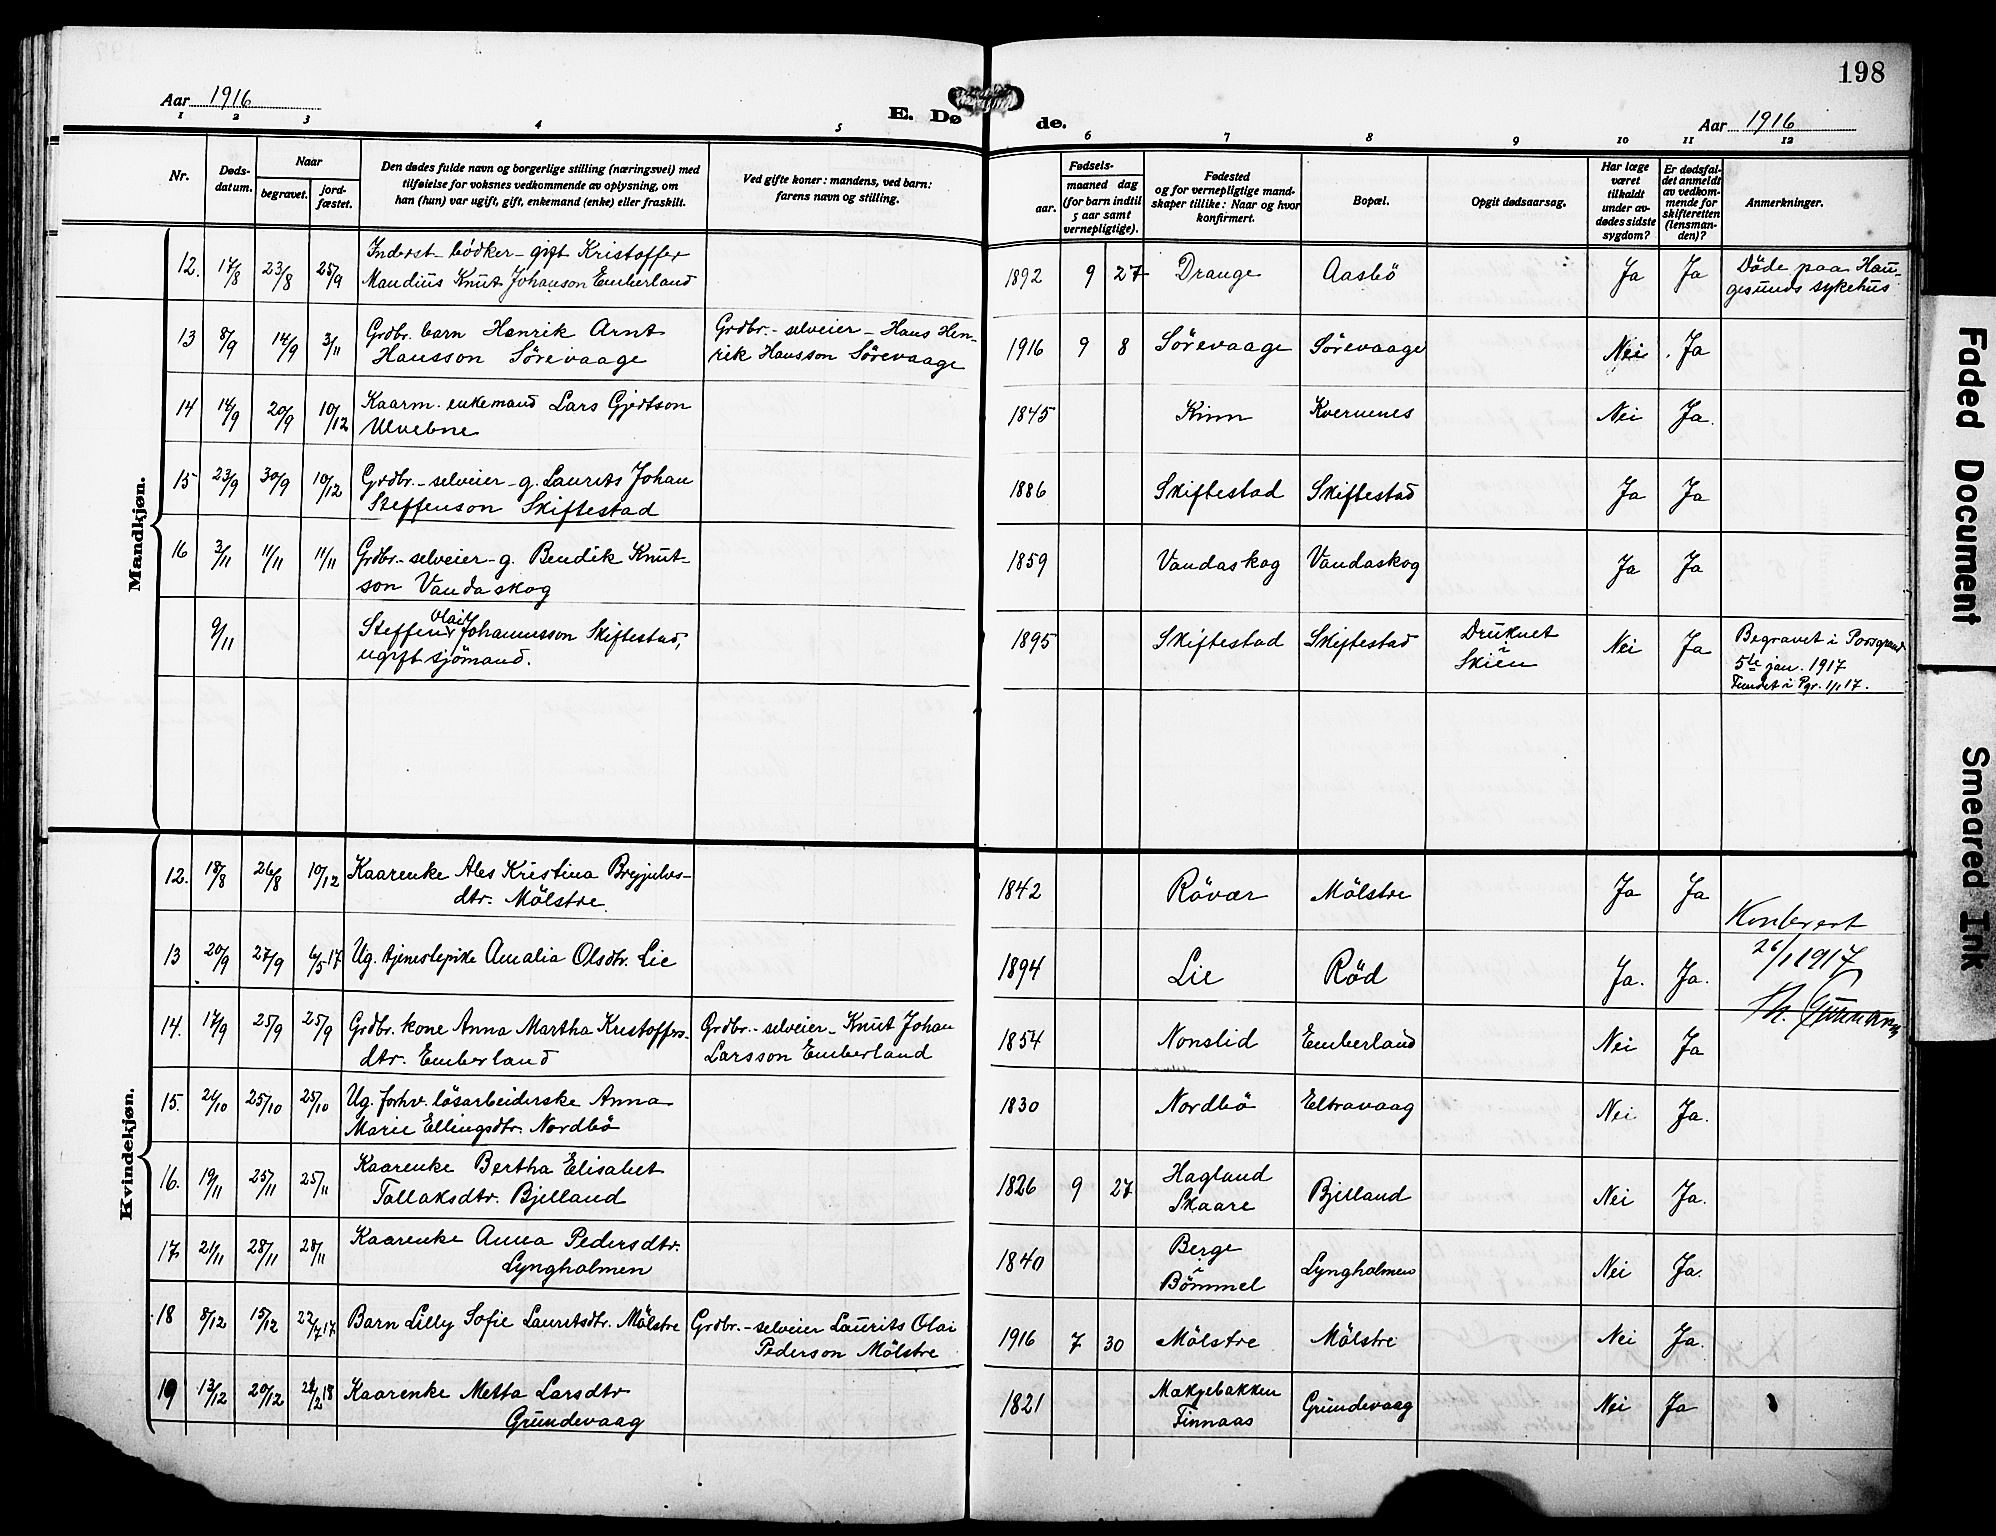 198
Aar 1916
E. Døde.
Aar 1916
1 2 3 4 5 6 7 8 9 10 11 12
Nr.
Døds-
datum.
Naar
begravet.
jord-
fæstet.
Den dødes fulde navn og borgerlige stilling (næringsvei) med
tilføielse for voksnes vedkommende av oplysning, om
han (hun) var ugift, gift, enkemand (enke) eller fraskilt.
Ved gifte koner: mandens, ved barn:
farens navn og stilling.
Fødsels-
aar.
maaned dag
(for barn indtil
5 aar samt
vernepligtige).
Fødested
og for vernepligtige mand-
skaper tillike: Naar og hvor
konfirmert.
Bopæl.
Opgit dødsaarsag.
Har læge
været
tilkaldt
under av-
dødes sidste
sygdom?
Er dødsfal-
det anmeldt
av vedkom-
mende for
skifteretten
(lensman-
den)?
Anmerkninger.
Mandkjøn.
12. 17/8 23/8 25/9 Inderst- bödker- gift Kristoffer
Mandius Knut Johanson Emberland
1892 9 27 Drange Aasbö Ja Ja Döde paa Hau-
gesunds sykehus
13 8/9 14/9 3/11 Grdbr. barn Henrik Arnt
Hansson Sörevaage
Grdbr.- selveier- Hans Hen-
rik Hansson Sörevaage
1916 9 8 Sörevaage Sörevaage Nei Ja
14 14/9 20/9 10/12 Kaarm. enkemand Lars Gjertson
Ulvebne
1845 Kinn Kvernenes Nei Ja.
15 23/9 30/9 10/12 Grdbr.- selveier- g. Laurits Johan
Steffenson Skiftestad
1886 Skiftestad Skiftestad Ja Ja
16 3/11 11/11 11/11 Grdbr.- selveier- g. Bendik Knut-
son Vandaskog
1859 Vandaskog Vandaskog Ja Ja
9/11 Steffen Olai Johannesson Skiftestad,
ugift sjömand.
1895 Skiftestad Skiftestad Druknet
i
Skien
Nei Ja Begravet i Porsgrund
5te jan. 1917
Fundet i Pgr. 1/1 17.
Kvindekjøn.
12. 18/8 26/8 10/12 Kaarenke Ales Kristina Brynjulvs-
dtr. Mölstre
1842 Rövær Mölstre Ja Ja
13 20/9 27/9 6/5 17 Ug. tjenestepike Amalia Olsdtr. Lie
1894 Lie Röd Ja. Ja.
Konferert
26/1 1917
Th.
14. 17/9 25/9 25/9 Grdbr. kone Anna Martha Kristoffers-
dtr. Emberland
Grdbr.- selveier- Knut Johan
Larsson Emberland
1854 Nonslid Emberland Nei Ja
15. 21/10 25/10 25/10 Ug. forhv. lösarbeiderske Anna
Marie Ellingsdtr. Nordbö
1830 Nordbö Eltravaag Nei Ja.
16. 19/11 25/11 25/11 Kaarenke Bertha Elisabet
Tallaksdtr. Bjelland
1826 9 27 Hagland
Skaare
Bjelland Nei Ja.
17 21/11 28/11 28/11 Kaarenke Anna Pedersdtr.
Lyngholmen
1840 Berge
i
Bömmel
Lyngholmen Nei Ja.
18 8/12 15/12 22/7 17 Barn Lilly Sofie Lauritsdtr. Mölstre
Grdbr.- selveier Laurits Olai
Pederson Mölstre
1916 7 30 Mölstre Mölstre Nei Ja.
19 13/12 20/12 24/2 18 Kaarenke Metta Larsdtr
Grundevaag
1821 Mækjebakken
Finnaas
Grundevaag Nei Ja
Faded Document
Smeared Ink